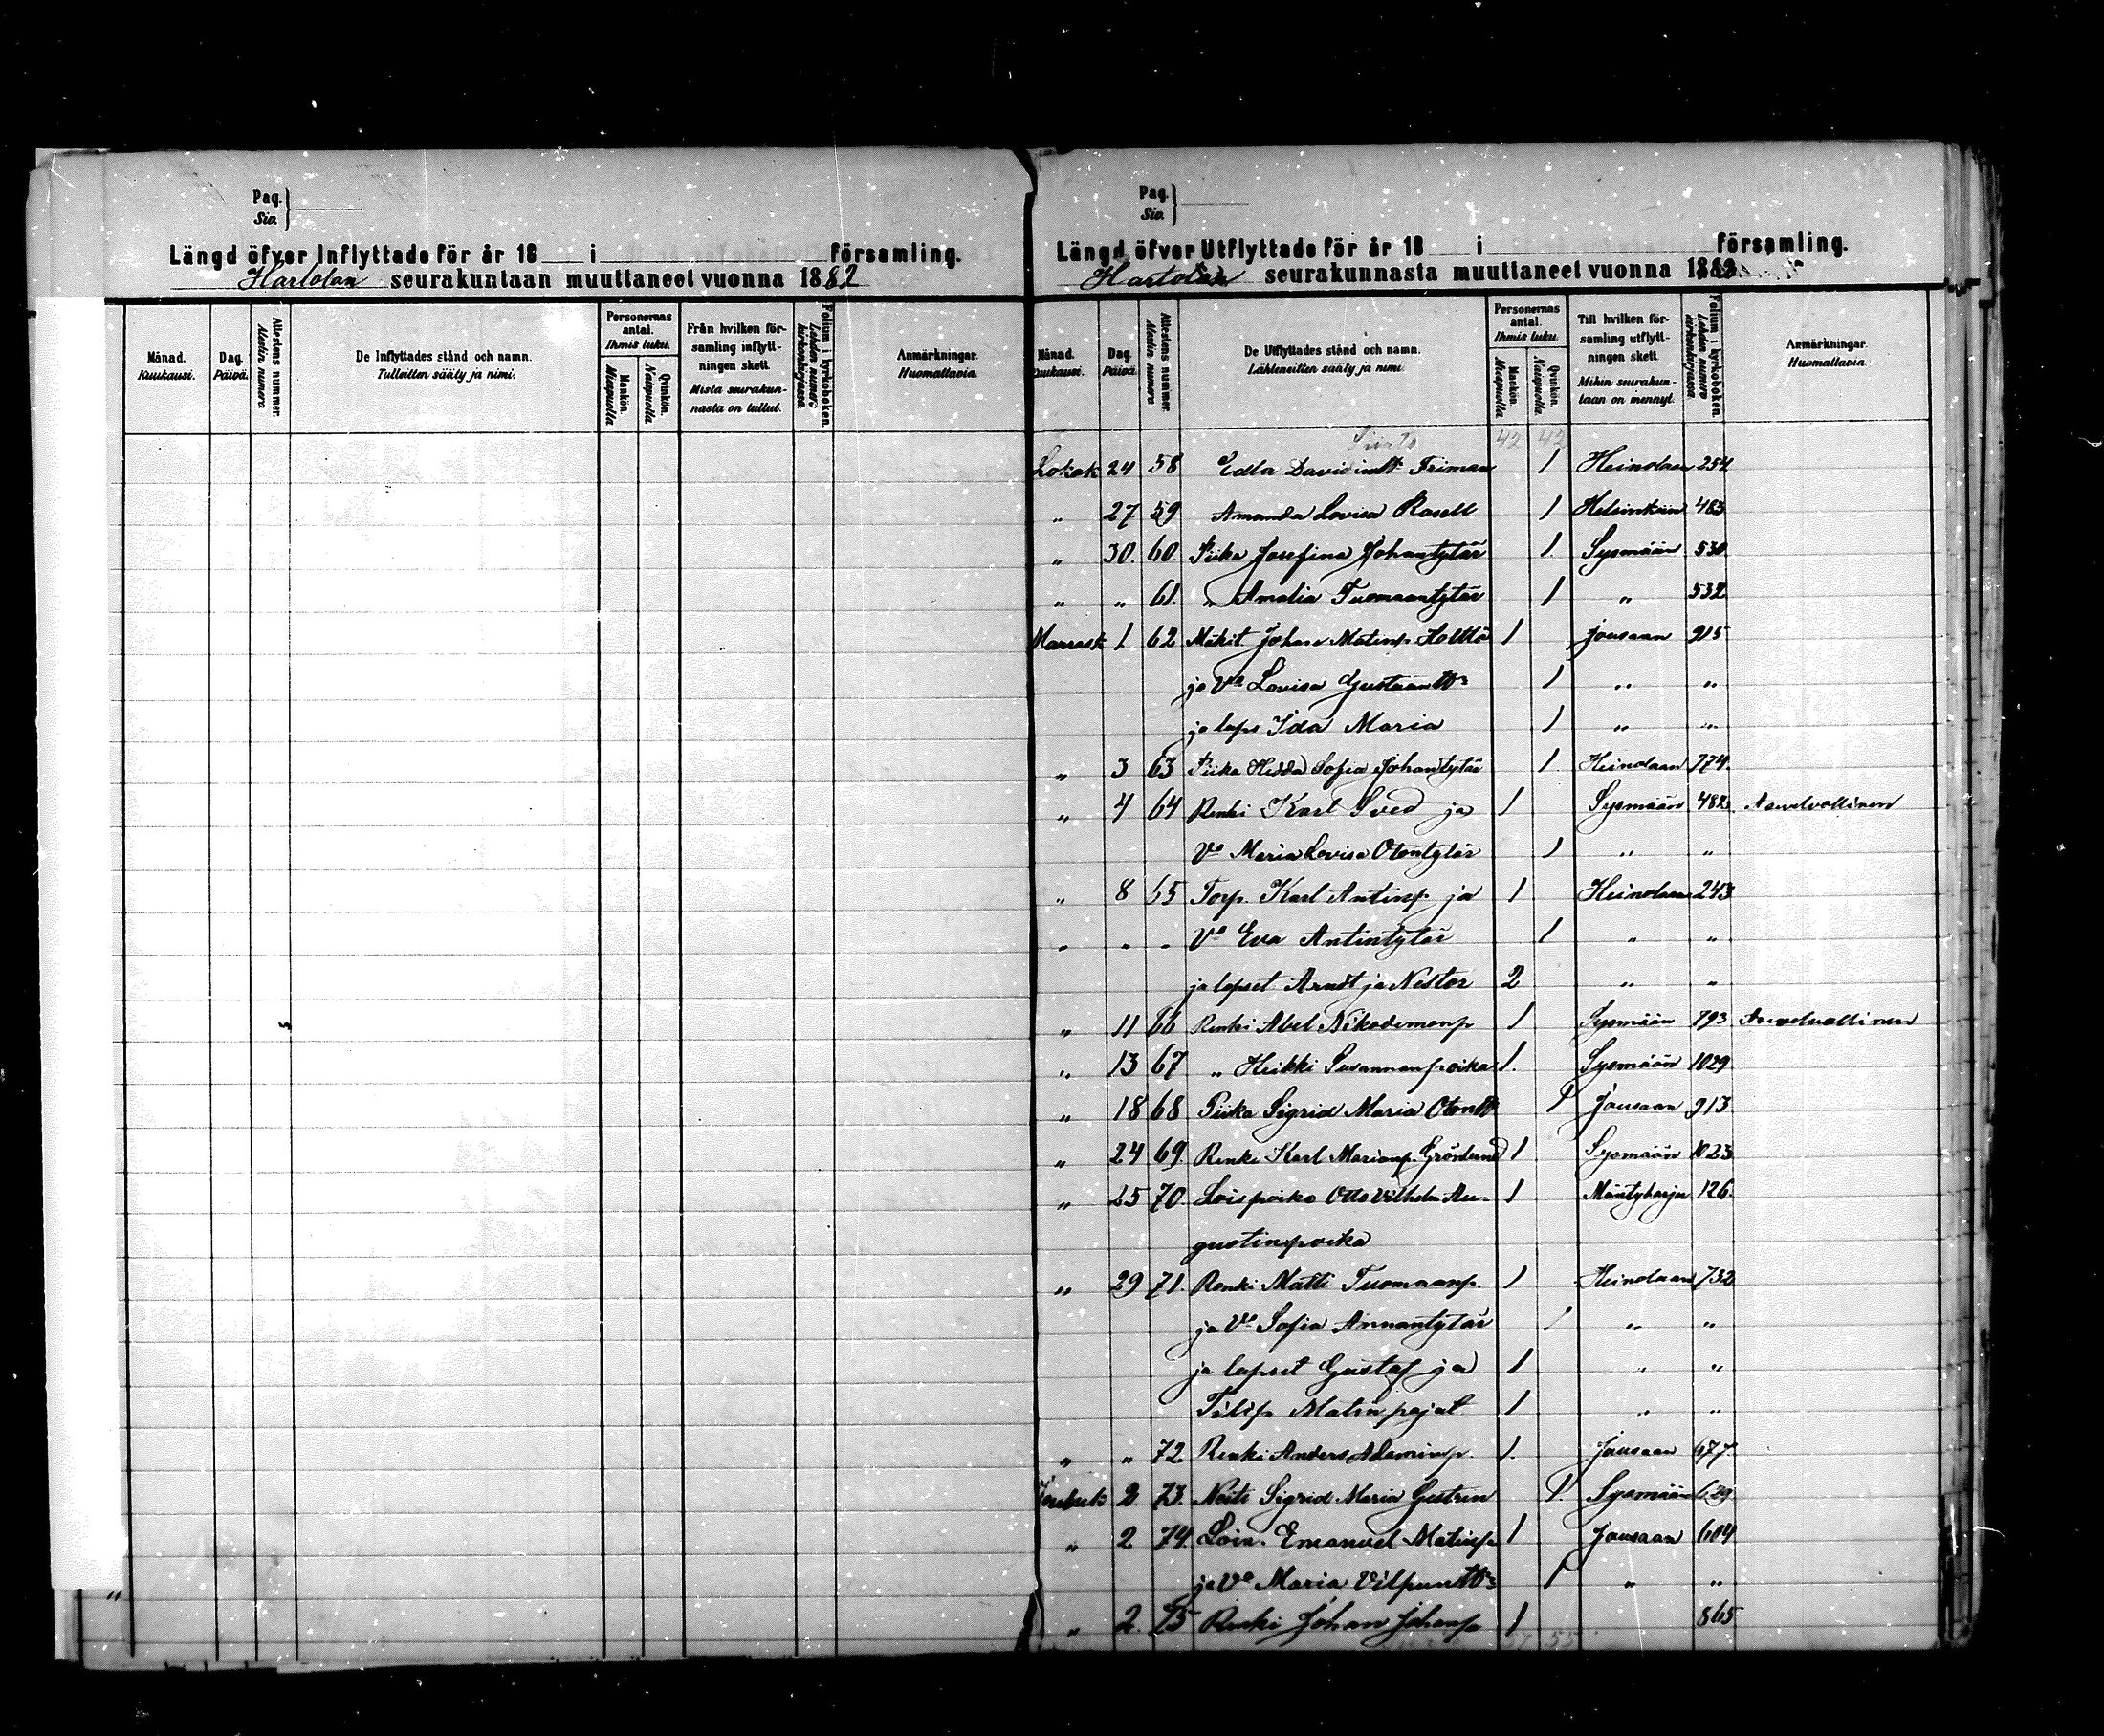 Pag.
Siv.
Längd öfver Inflyttade för år 18 i församling.
Hartolan seurakuntaan muuttaneet vuonna 1882
Månad.
Kuukausi.
Dag.
Päivä.
Attestens nummer.
Alestin numero
De Inflyttades stånd och namn.
Tulleitten sääty ja nimi.
Personernas antal.
Ihmis luku.
Mankön.
Miespuolia
Qvinkön.
Naispuolia
Från hvilken för-
samling inflytt-
ningen skett.
Mistä seurakun-
nasta on tullut.
Folium i kyrkoboken.
Lehden numero
kirkonkirjassa
Anmärkningar.
Huomattavia.
Pag.
Siv.
Längd öfver Utflyttade för år 18 i församling.
Hartolan seurakunnasta muuttaneet vuonna 1882
Månad.
Kuukausi.
Dag.
Päivä
Attestens nummer.
Alestin numero
De Utflyttades stånd och namn.
Lähteneitten sääty ja nimi
Personernas antal.
Ihmis luku.
Mankön.
Miespuolia
Qvinkön.
Naispuolia
Till hvilken för-
samling utflytt-
ningen skett
Mihin seurakun-
taan on mennyt.
Folium i kyrkoboken.
Lehden numero
kirkonkirjassa
Anmärkningar
Huomattavia.
Siirto 42 42
Lokak 24 58 Edla Davidintr Friman 1 Heinolaan 254
" 27 59 Amanda Lovisa Rosell 1 Helsinkiin 463
" 30. 60. Piika Josefina Johantytär 1. Sysmään 530
" " 61. " Amalia Tuomaantytär 1 " 532
Marrask 1. 62 Mäkit. Johan Matinp. 1 Jousaan 915
ja Vo Lovisa Gustaantr 1 " "
ja laps Ida Maria 1 " "
" 3 63 Piika Hedda Sofia Johantytär 1. Heinolaan 774.
" 4 64 Renki Karl Sved ja 1 Sysmään 482 Aswelvollinen
Vo Maria Lovisa Otontytär 1 " "
" 8 65 Torp. Karl Antinp. ja 1 Heinolaan 243
" " " Vo Eva Antintytär 1 " "
ja lapset Arndt ja Nestor 2 " "
" 11 66 Renki Abel Nikodemonp 1 Sysmään 793 Aswelvollinen
" 13 67 " Heikki Susannanpoika 1. Sysmään 1029
" 18 68 Piika Sigrid Maria Otontr 1 Jousaan 913
" 24 69. Renki Karl Marianp. Grönlund 1 Sysmään 1023
" 25 70. Loispoika Otto Vilhelm Au- 1 Mäntyharju 126.
gustinpoika
" 29 71. Renki Matti Tuomaanp. 1 Heinolaan 732
ja Vo Sofia Annantytär 1 " "
ja lapset Gustaf ja 1 " "
Filip Matin pojat 1 " "
" " 72. Renki Anders Adaminp. 1. Jousaan 677.
Jouluk 2. 73. Neiti Sigrid Maria 1. Sysmään 629
" 2 74. Lois. Emanuel Matinp. 1 Jousaan 604
ja Vo Maria Vilpuntr 1 " "
" 2. 75 Renki Johan Johanp 1 865
57 55